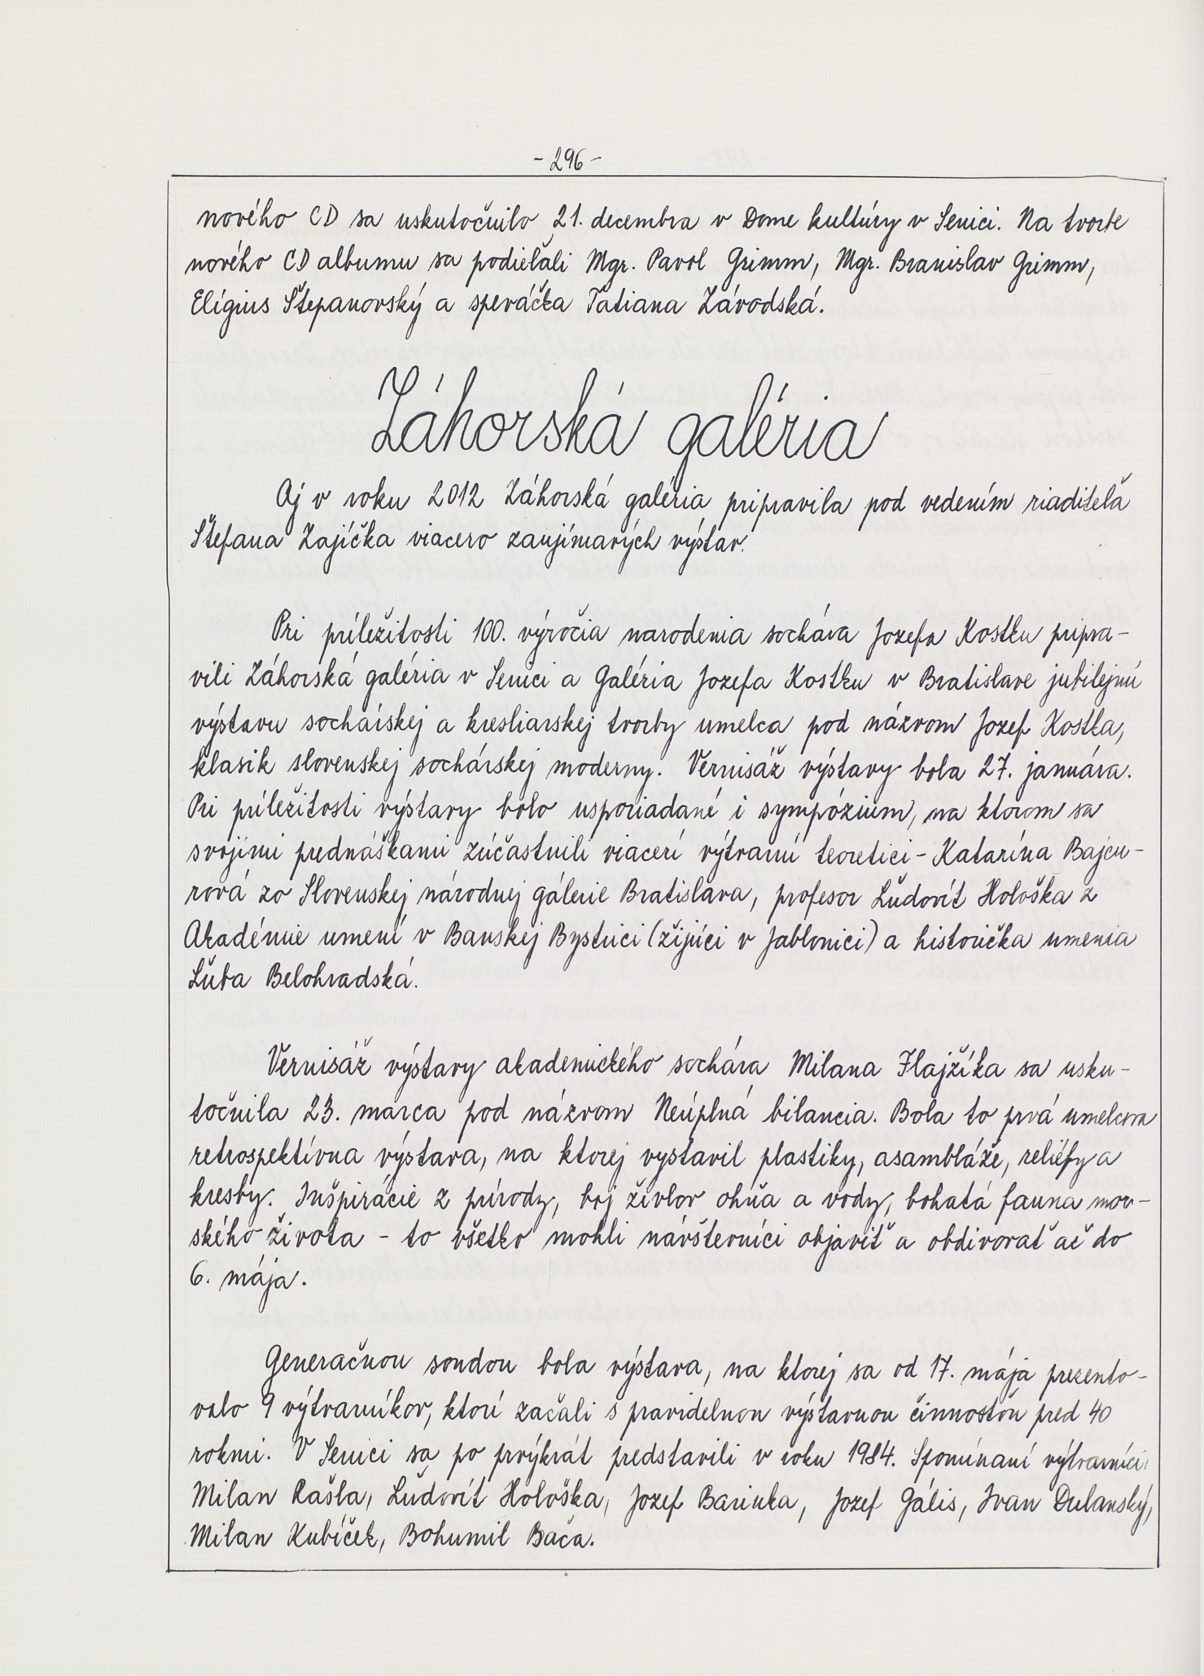 - 296 -
nového CD sa uskutočnilo 21. decembra v Dome kultúry v Senici. Na tvorbe
nového CD albumu sa podieľali Mgr. Pavol Grimm, Mgr. Branislav Grimm,
Eligius Štepanovský a speváčka Tatiana Závodská.
Záhorská galéria
Aj v roku 2012 Záhorská galéria pripravila pod vedením riaditeľa
Štefana Zajíčka viacero zaujímavých výstav.
Pri príležitosti 100. výročia narodenia sochára Jozefa Kostku pripra-
vili Záhorská galéria v Senici a Galéria Jozefa Kostku v Bratislave jubilejnú
výstavu sochárskej a kresliarskej tvorby umelca pod názvom Jozef Kostka,
klasik slovenskej sochárskej moderny. Vernisáž výstavy bola 27. januára.
Pri príležitosti výstavy bolo usporiadané i sympózium, na ktorom sa
svojimi prednáškami zúčastnili viacerí výtvarní teoretici - Katarína Bajcu-
rová zo Slovenskej národnej gálerie Bratislava, profesor Ľudovít Hološka z
Akadémie umení v Banskej Bystrici (žijúci v Jablonici) a historička umenia
Ľuba Belohradská.
Vernisáž výstavy akademického sochára Milana Flajžíka sa usku-
točnila 23. marca pod názvom Neúplná bilancia. Bola to prvá umelcova
retrospektívna výstava, na ktorej vystavil plastiky, asambláže, reliéfy a
kresby. Inšpirácie z prírody, boj živlov ohňa a vody, bohatá fauna mor-
ského života - to všetko mohli návštevníci objaviť a obdivovať až do
6. mája.
Generačnou sondou bola výstava, na ktorej sa od 17. mája prezento-
valo 9 výtvarníkov, ktorí začali s pravidelnou výstavnou činnosťou pred 40
rokmi. V Senici sa po prvýkrát predstavili v roku 1984. Spomínaní výtvarníci:
Milan Rašla, Ľudovít Hološka, Jozef Barinka, Jozef Gális, Ivan Dulanský,
Milan Kubíček, Bohumil Bača.